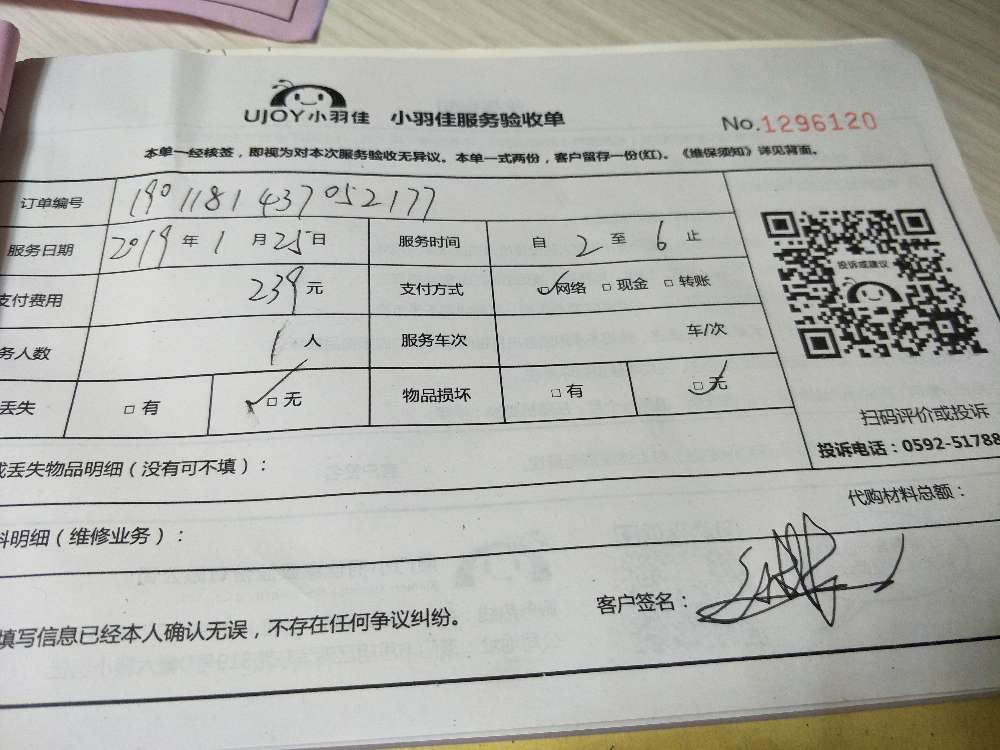 UJOY小羽佳 小羽佳服务验收单 No.1296120
本单一经核签，即视为对本次服务验收无异议。本单一式两份，客户留存一份(红)。《维保须知》详见背面。
订单编号 1901181437052177
服务日期 2019年1月25日 服务时间 自2至6止
支付费用 239元 支付方式 ☑网络 □现金 □转账
务人数 1人 服务车次 车/次
丢失 □有 ☑无 物品损坏 □有 ☑无
投诉或建议
扫码评价或投诉
投诉电话：0592-51788
或丢失物品明细（没有可不填）：
料明细（维修业务）： 代购材料总额：
填写信息已经本人确认无误，不存在任何争议纠纷。 客户签名：